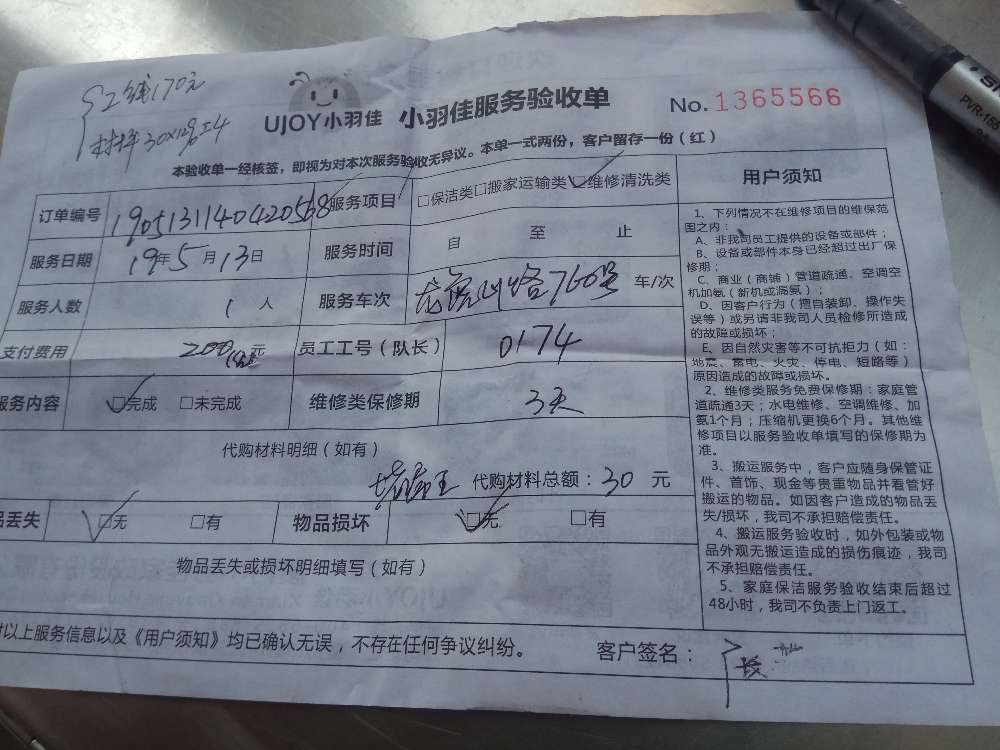 170元
UJOY小羽佳 小羽佳服务验收单 No. 1365566
本验收单一经核签，即视为对本次服务验收无异议。本单一式两份，客户留存一份（红）
订单编号 服务项目 □保洁类□搬家运输类□维修清洗类
服务日期 19年5月13日 服务时间 自 至 止
服务人数 1人 服务车次 760号 车/次
支付费用 200 元 员工工号（队长） 0174
服务内容 □完成 □未完成 维修类保修期 3天
代购材料明细（如有）
代购材料总额：30 元
丢失 □无 □有 物品损坏 □无 □有
物品丢失或损坏明细填写（如有）
以上服务信息以及《用户须知》均已确认无误，不存在任何争议纠纷。 客户签名：
用户须知
1、下列情况不在维修项目的维保范
围之内：
A、非我司员工提供的设备或部件；
B、设备或部件本身已经超过出厂保
修期；
C、商业（商铺）管道疏通、空调空
机加氨（新机或漏氨）；
D、因客户行为（擅自装卸、操作失
误等）或另请非我司人员检修所造成
的故障或损坏；
E、因自然灾害等不可抗拒力（如：
地震、雷电、火灾、停电、短路等）
原因造成的故障或损坏。
2、维修类服务免费保修期：家庭管
道疏通3天；水电维修、空调维修、加
氨1个月；压缩机更换6个月。其他维
修项目以服务验收单填写的保修期为
准。
3、搬运服务中，客户应随身保管证
件、首饰、现金等贵重物品并看管好
搬运的物品。如因客户造成的物品丢
失/损坏，我司不承担赔偿责任。
4、搬运服务验收时，如外包装或物
品外观无搬运造成的损伤痕迹，我司
不承担赔偿责任。
5、家庭保洁服务验收结束后超过
48小时，我司不负责上门返工。